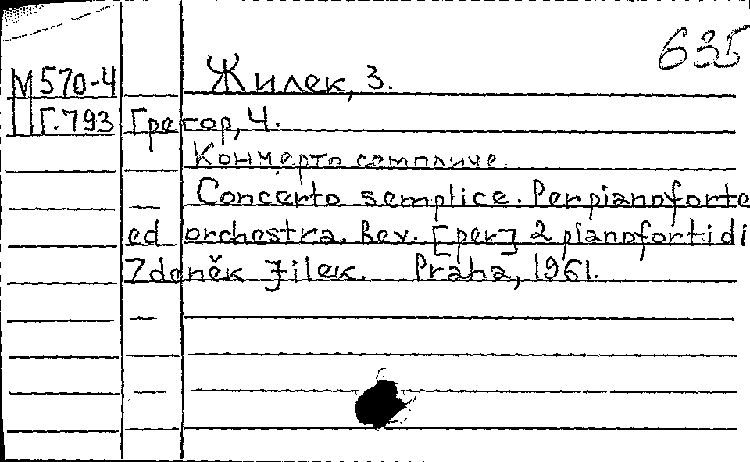 635
М 570-4 Жилек, З.
Г.793 Грегор, Ч.
Концерто семпличе.
Concerto semplice. Per pianoforte
ed orchestra. Rev. [per] 2 pianoforti di
Zdeněk Jílek. Praha, 1961.